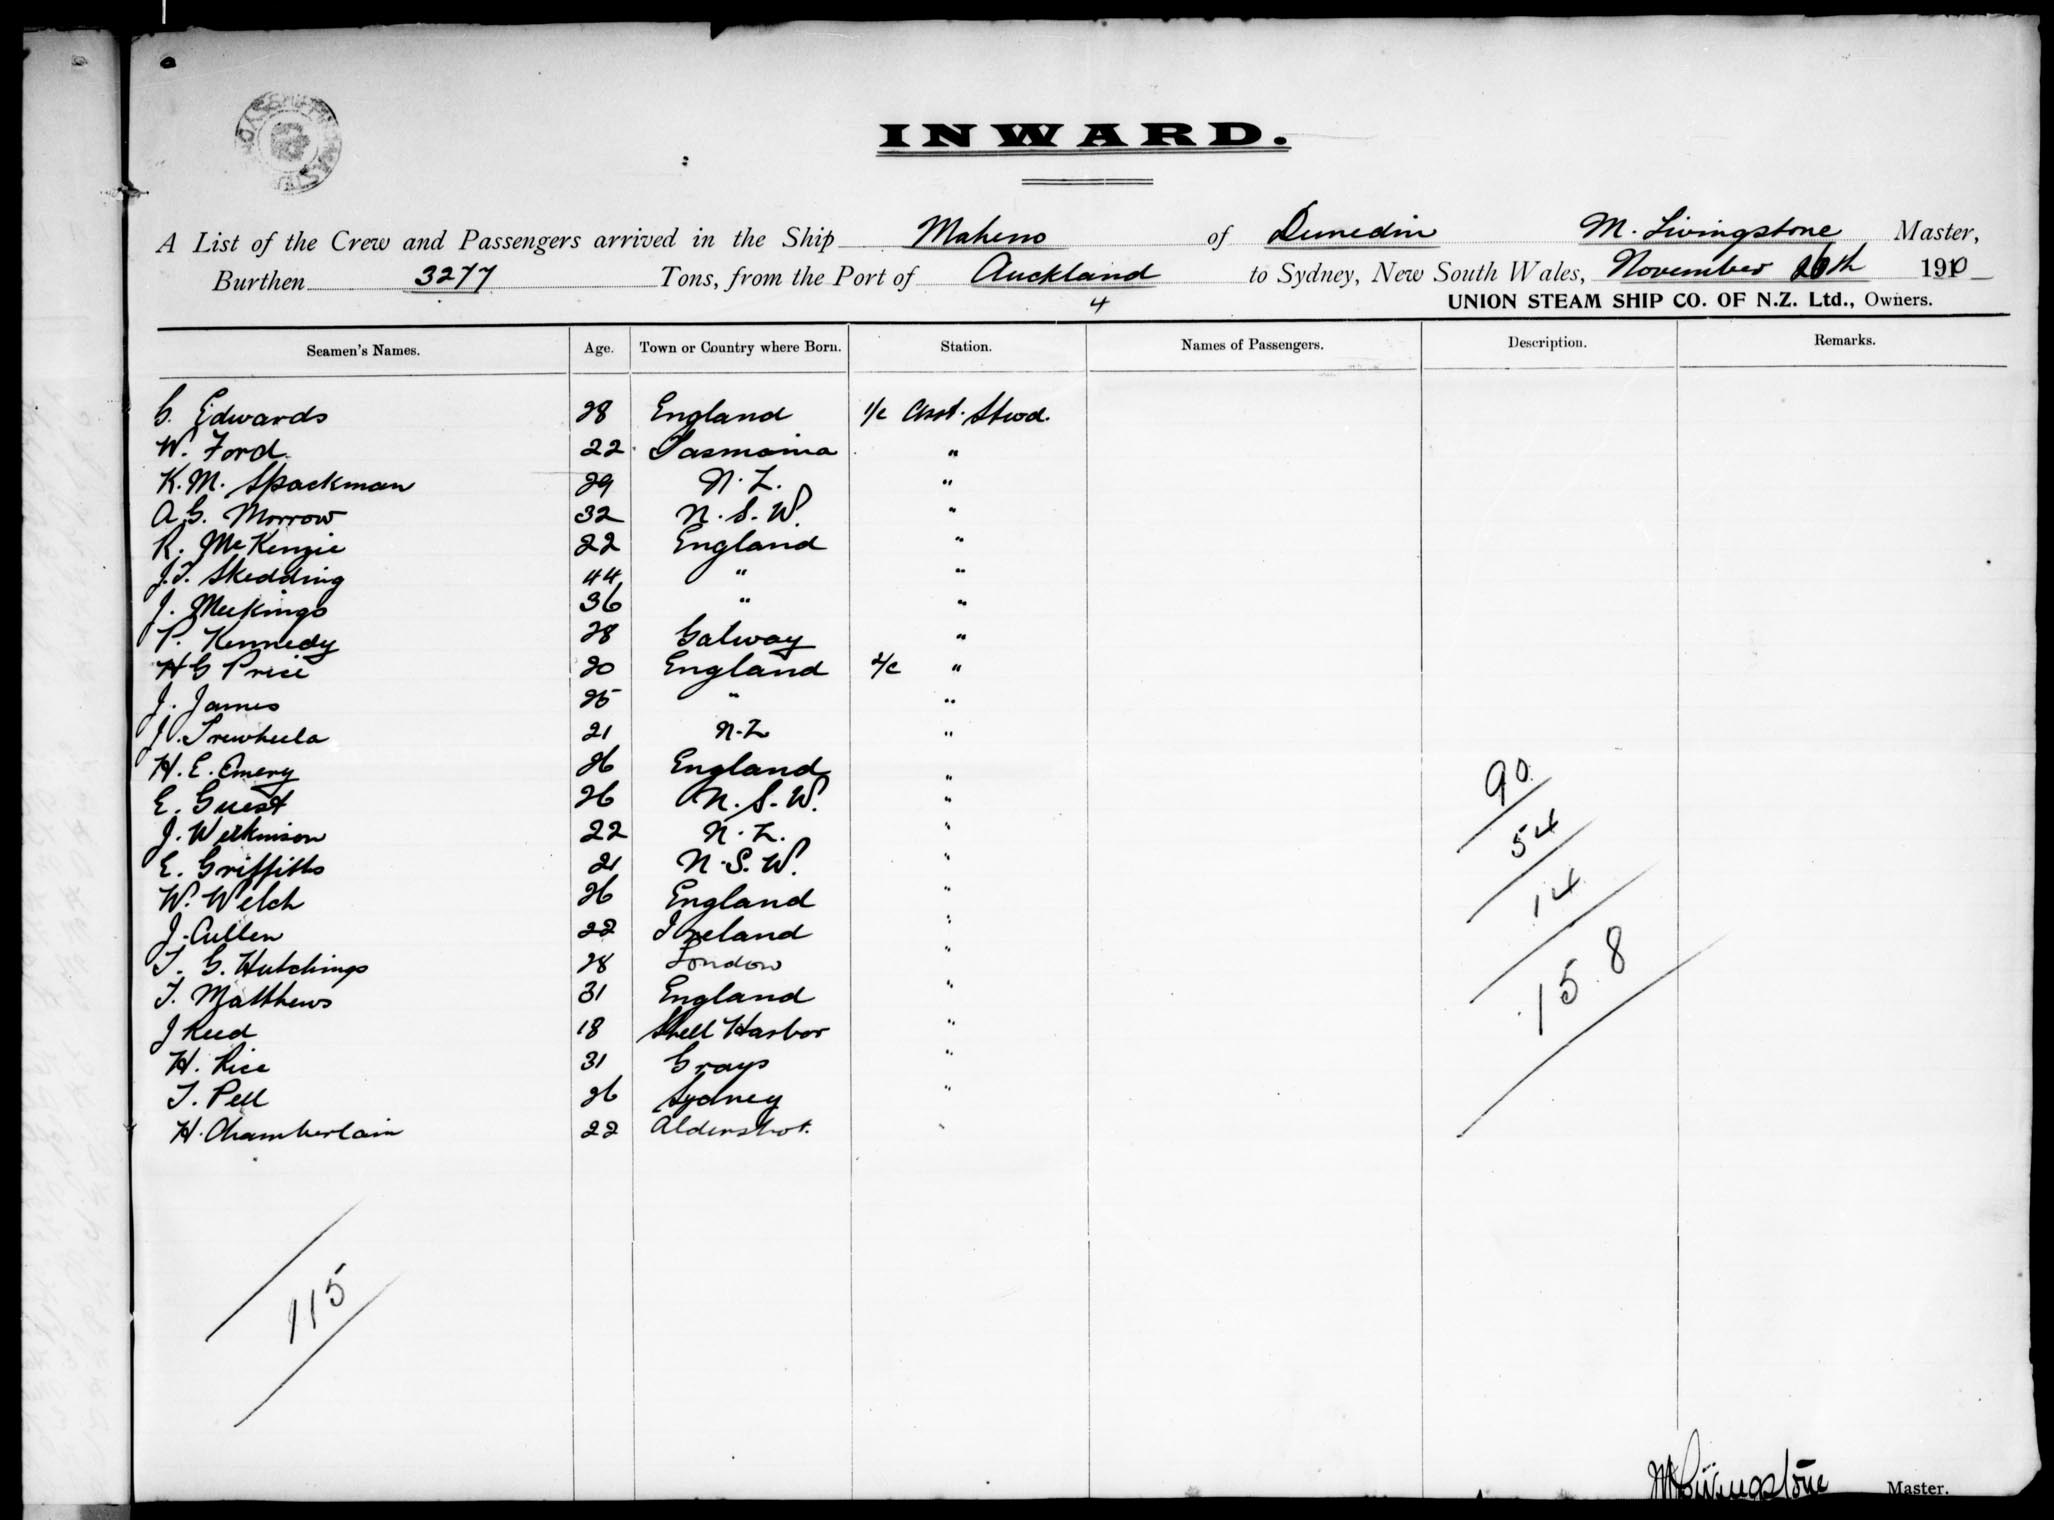 INWARD.
A List of the Crew and Passengers arrived in the Ship Maheno of Dunedin M. Livingstone Master,
Burthen 3277 Tons, from the Port of Auckland to Sydney, New South Wales, November 26th 1910
4
UNION STEAM SHIP CO. OF N.Z. Ltd., Owners.
Seamen's Names. Age. Town or Country where Born. Station. Names of Passengers. Description. Remarks.
G. Edwards 28 England 1/c Asst. Stwd.
W. Ford 22 Tasmania "
K.M. Spackman 29 N.Z. "
A.G. Morrow 32 N.S.W. "
R. McKenzie 22 England "
J.T. Skedding 44 " "
J. Meekings 36 " "
P. Kennedy 28 Galway "
H G Price 20 England 2/c "
J. James 25 " "
J. Trewheela 21 N.Z "
H. E. Emery 26 England "
E. Guest 26 N.S.W. "
J. Wilkinson 22 N.Z. "
E. Griffiths 21 N.S.W. "
W. Welch 26 England "
J. Cullen 22 Ireland "
T. G. Hutchings 28 London "
T. Matthews 31 England "
J Reed 18 Shell Harbor "
H. Rice 31 Grays "
T. Pell 26 Sydney "
H. Chamberlain 22 Aldershot. "
90
54
14
158
115
M Livingstone Master.